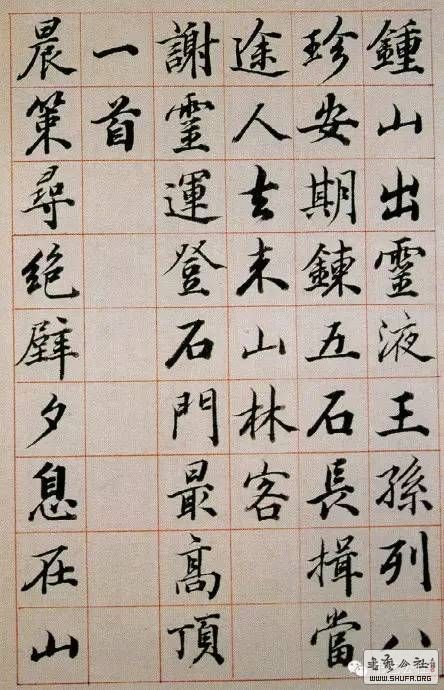 鍾山出靈液王孫列八
珍安期鍊五石長揖當
途人去来山林客
謝靈運登石門最高頂
一首
晨策尋絕壁夕息在山
書藝公社
WWW.SHUFA.ORG